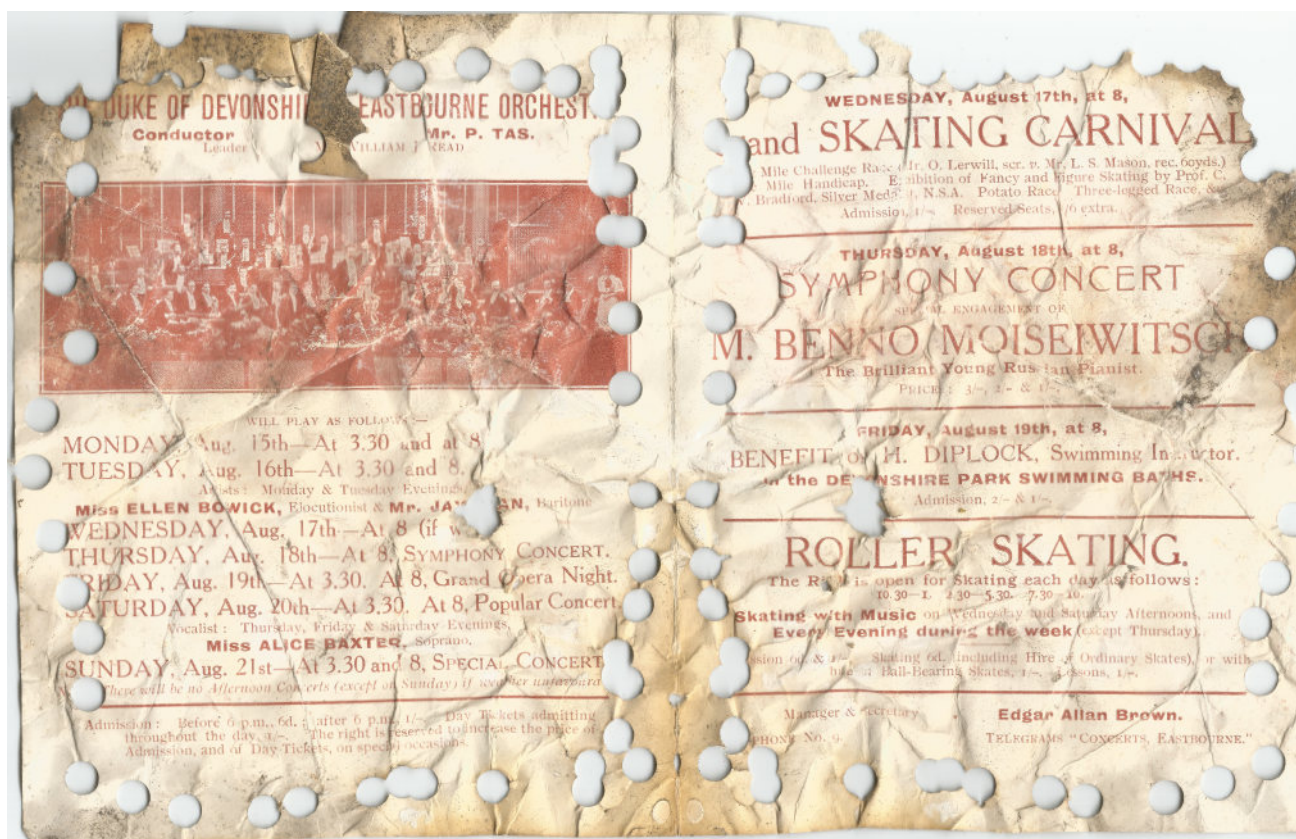 DUKE OF DEVONSHI EASTBOURNE ORCHEST
Conductor Mr. P. TAS.
Leader WILLIAM READ
WILL PLAY AS FOLLOWS:—
MONDAY, Aug. 15th—At 3.30 and at 8
TUESDAY, Aug. 16th—At 3.30 and 8.
Artists: Monday & Tuesday Evenings,
Miss ELLEN BOWICK, Elocutionist & Mr. Baritone
WEDNESDAY, Aug. 17th—At 8 (if
THURSDAY, Aug. 18th—At 8, SYMPHONY CONCERT.
FRIDAY, Aug. 19th—At 3.30. At 8, Grand Opera Night.
SATURDAY, Aug. 20th—At 3.30. At 8, Popular Concert
Vocalist: Thursday, Friday & Saturday Evenings,
Miss ALICE BAXTER, Soprano,
SUNDAY, Aug. 21st—At 3.30 and 8, SPECIAL CONCERT
There will be no Afternoon Concerts (except on Sunday) if weather unfavoura
Admission: Before 6 p.m., 6d.; after 6 p.m., 1/-. Day Tickets admitting
throughout the day, The right is reserved to increase the price of
Admission, and of Day Tickets, on special occasions.
WEDNESDAY, August 17th, at 8,
and SKATING CARNIVAL
Mile Challenge Race (Mr. O. Lerwill, scr. v. Mr. L. S. Mason, rec. 60yds.)
Mile Handicap. Exhibition of Fancy and Figure Skating by Prof. C.
Bradford, Silver Medal N.S.A. Potato Race Three-legged Race,
Admission, 1/-. Reserved Seats, /6 extra.
THURSDAY, August 18th, at 8,
SYMPHONY CONCERT
SPECIAL ENGAGEMENT OF
M. BENNO MOISEIWITSCH
The Brilliant Young Russian Pianist.
PRICES: 3/-, 2/- & 1/-
FRIDAY, August 19th, at 8,
BENEFIT of H. DIPLOCK, Swimming Instructor.
in the DEVONSHIRE PARK SWIMMING BATHS.
Admission, 2/- & 1/-.
ROLLER SKATING.
The Rink is open for Skating each day as follows:
10.30—1. 2.30—5.30. 7.30—10.
Skating with Music on Wednesday and Saturday Afternoons, and
Every Evening during the week (except Thursday).
ssion 6d. & 1/-. Skating 6d. (including Hire of Ordinary Skates), or with
hire of Ball-Bearing Skates, 1/-. Lessons, 1/-.
Manager & Secretary Edgar Allan Brown.
PHONE No. 9. TELEGRAMS "CONCERTS, EASTBOURNE."